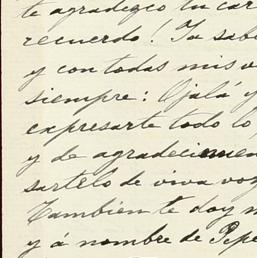 te agradezco tu car
recuerdo! Ya sabe
y con todas mis v
siempre: Ojalá y
expresarte todo lo
y de agradecimien
sartelo de viva voz
Tambien te doy m
y á nombre de Pepe